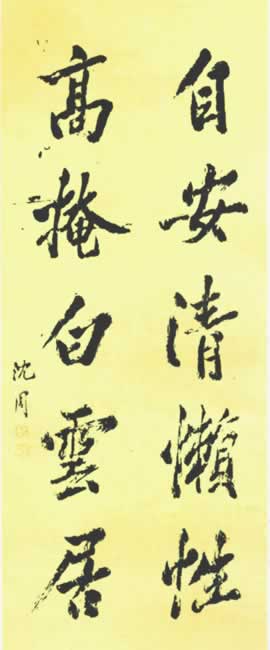 自安清懶性
高掩白雲居
沈周